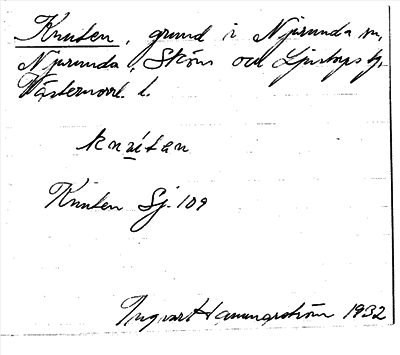 Knuten, grund i Njurunda sn,
Njurunda, Sköns och Ljustorps tg.
Västernorrl. l.
knútan
Knuten Sj. 109
Ingvar Hammarström 1932